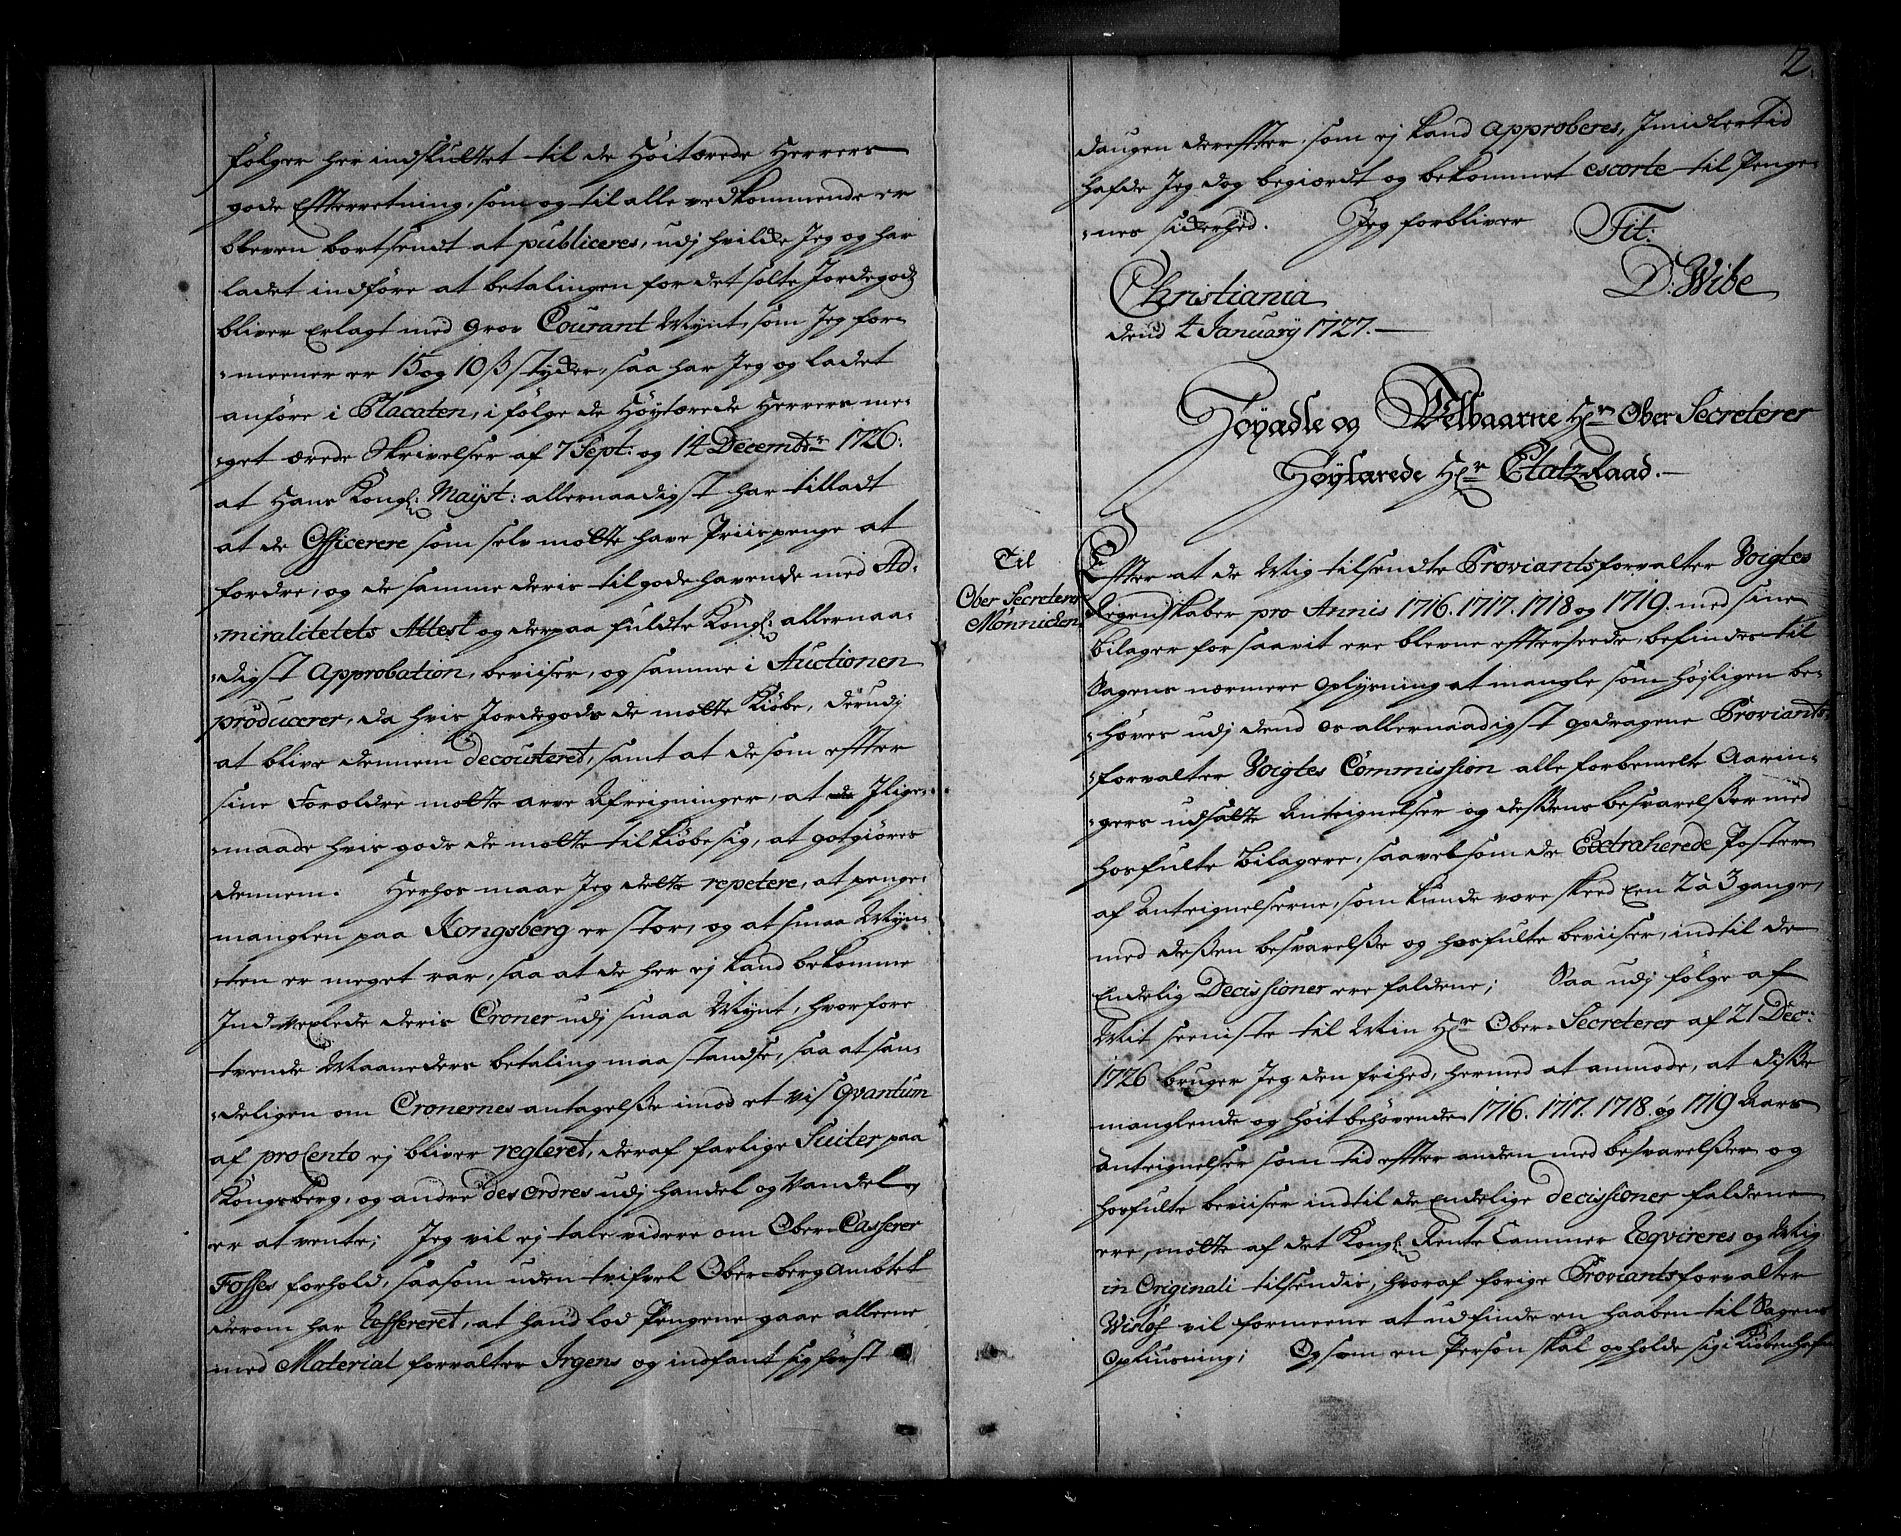 følger her indsluttet til de Høitærede Herrers
gode Efterretning, som og til alle vedkommende er
bleven bortsendt at publiceres, udj hvilcke Jeg og har
ladet indføre at betalingen for det solte Jordegodz
bliver Erlagt med grov Courant Mynt, som Jeg for-
-meener er 15 og 10 ß stycker, saa har Jeg og ladet
anføre i Placaten, i følge de Høytærede Herrers me-
-get ærede Skrivelser af 7 Sept: og 14 Decembr: 1726:
at Hans Kongl: Mayst: allernaadigst har tilladt
at de Officerere som selv motte have Priispenge at
fordre, og de samme deris tilgodehavende med Ad-
-miralitetets Attest og derpaa fuldte Kongl: allernaa-
-digst Approbation, beviiser, og samme i Auctionen
producerer, da hvis Jordegods de motte Kiøbe, derudj
at blive dennem decourteret, samt at de som efter
sine Foroldre motte arve Afreigninger, at Jlige-
-maade hvis gods de motte tilkiøbe sig, at gotgiøres
dennem. Herhos maae Jeg dette repetere, at penge-
manglen paa Kongsberg er stor, og at smaa Myn-
-ten er meget rar, saa at de her ej kand bekomme
Jndvexlede deris Croner udj smaa Mynt, hvorfore
tvende Maaneders betaling maa standse, saa at san-
-deligen om Cronernes antagelsse imod et vis qvantum
af procento ej bliver regleret, deraf farlige Suiter paa
Kongsberg, og andre desordres udj handel og Vandel
er at vente; Jeg vil ej tale videre om Ober-Casserer
Fosses forhold, saasom uden tvifvel Ober-bergAmbtet
derom har Refereret, at hand lod Pengene gaae alleene
med Material forvalter Irgens og indfant sig først
2.
daugen derefter, som ej kand approberes, Jmidlertid
hafde Jeg dog begiærdt og bekommet escorte til Penge-
-nes sickerhed. Jeg forbliver Tit:
D: Wibe
Christiania
dend 4 January 1727.
Høyædle og Velbaarne Hr. Ober Secreterer
Høytærede Hr. EtatzRaad.
Til
Ober Secreterer
Mönnichen
Efter at de Mig tilsendte Proviantsforvalter Voigtes
Regenskaber pro Annis 1716. 1717. 1718 og 1719. med sine
bilager for saavit ere blevne efterseede, befindes til
Sagens nærmere Oplysning at mangle som højligen be-
-høves udj dend os allernaadigst opdragene Proviants-
-forvalter Voigtes Commission alle forbemelte Aarin-
-gers udsatte Anteignelser og dessens besvarelsser med
hosfulte bilagere, saavelsom de Extraherede Poster
af Anteignelserne, som kunde være skeed Een 2 à 3 gange,
med dessen besvarelsse og hosfulte beviiser, indtil de
Endelig Decissioner ere faldene; Saa udj følge af
Mit seeniste til Min Hr. Ober-Secreterer af 21 Dec:
1726 bruger Jeg den frihed, hermed at anmode, at disse
manglende og høit behövende 1716. 1717. 1718. og 1719 Aars
Anteignelser som tid efter anden med besvarelsser og
hosfulte beviiser indtil de Endelige decissioner faldene
ere, motte af det Kongl: Rente Cammer Reqvireres og Mig
in Originali tilsendis, hvoraf forige Proviantsforvalter
vil formeene at udfinde en haaben til Sagens
Opliusning; Og som en Person skal opholde sig i Kiøbenhafn